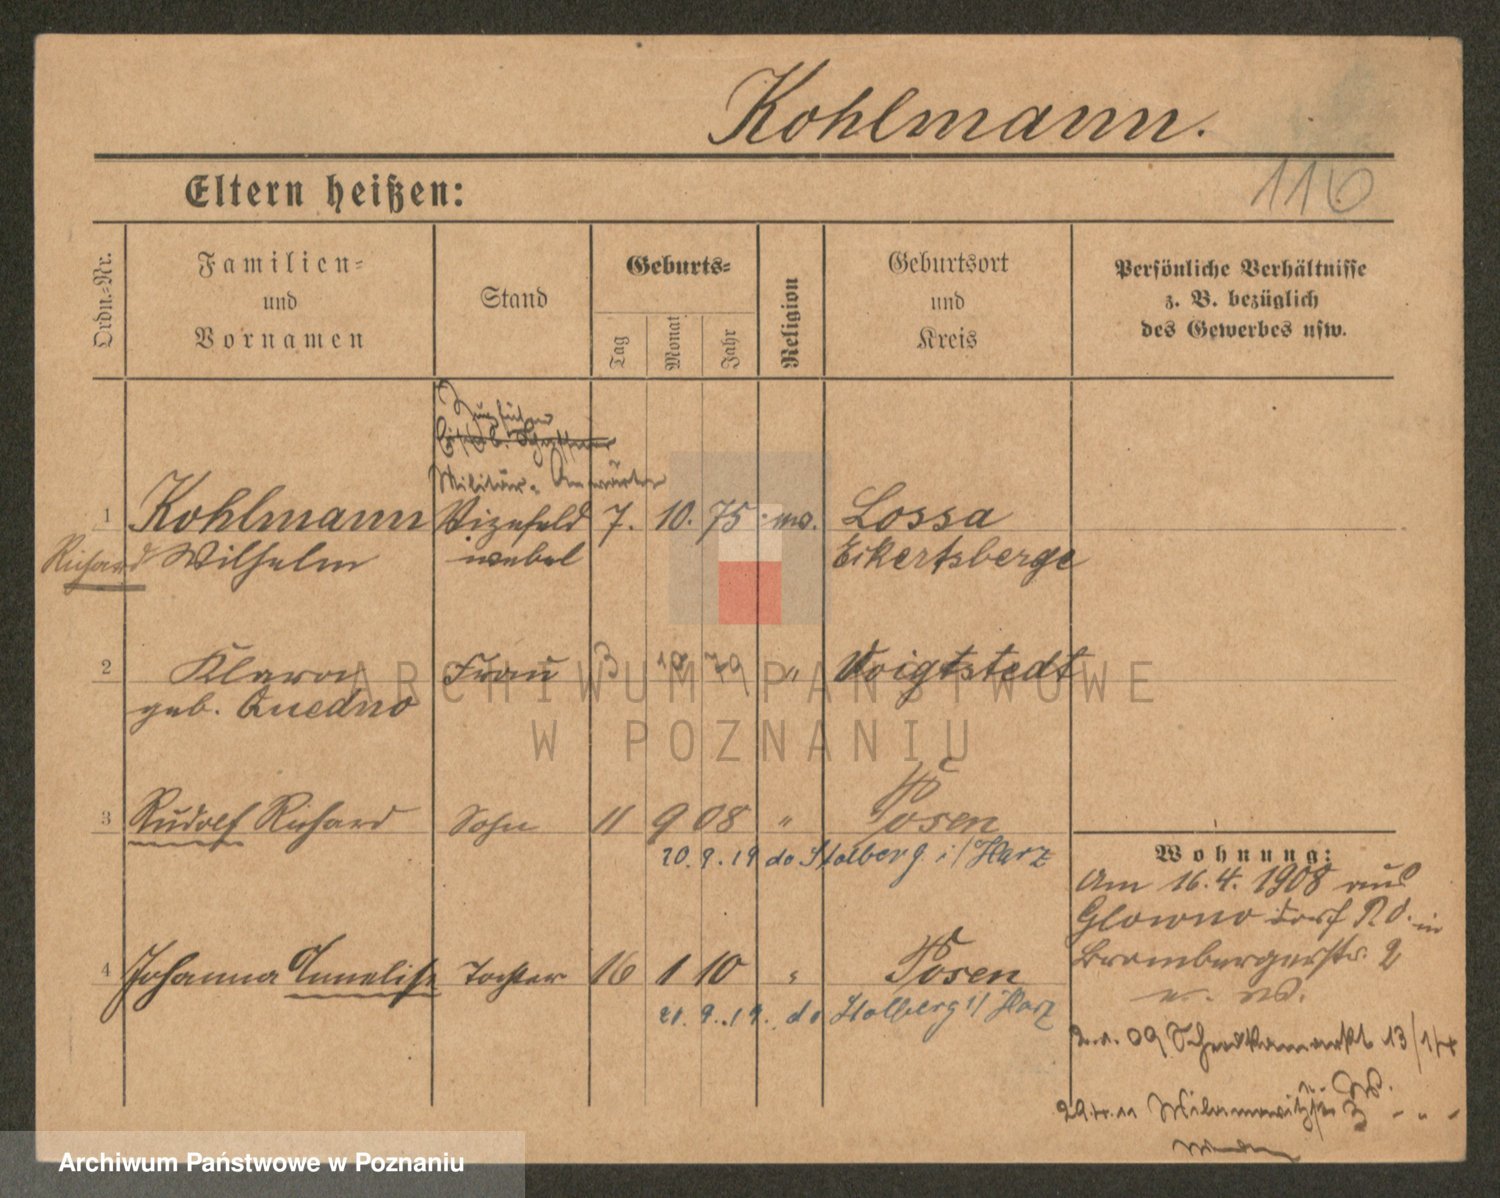 Kohlmann.
116
Eltern heißen:
Ordn.-Nr.
Familien-
und
Vornamen
Stand
Geburts-
Tag
Monat
Jahr
Religion
Geburtsort
und
Kreis
Persönliche Verhältnisse
z. B. bezüglich
des Gewerbes usw.
Zugführer
Militär-Anwärter
1 Kohlmann Vizefeld 7. 10. 75 ev. Lossa
Richard Wilhelm webel Eckertsberge
2 Klara Frau 3 10 79 " Voigtstedt
geb. Quedno
3 Rudolf Richard Sohn 11 9 08 " Posen
20. 9. 19 do Stolberg i/Harz
4 Johanna Annelise Tochter 16 1 10 " Posen
21. 9. 19. do Stolberg i/Harz
Wohnung:
Am 16. 4. 1908 aus
Glowno Dorf in
Brombergerstr. 2
09 13/14
29. 11
ARCHIWUM PAŃSTWOWE
W POZNANIU
Archiwum Państwowe w Poznaniu